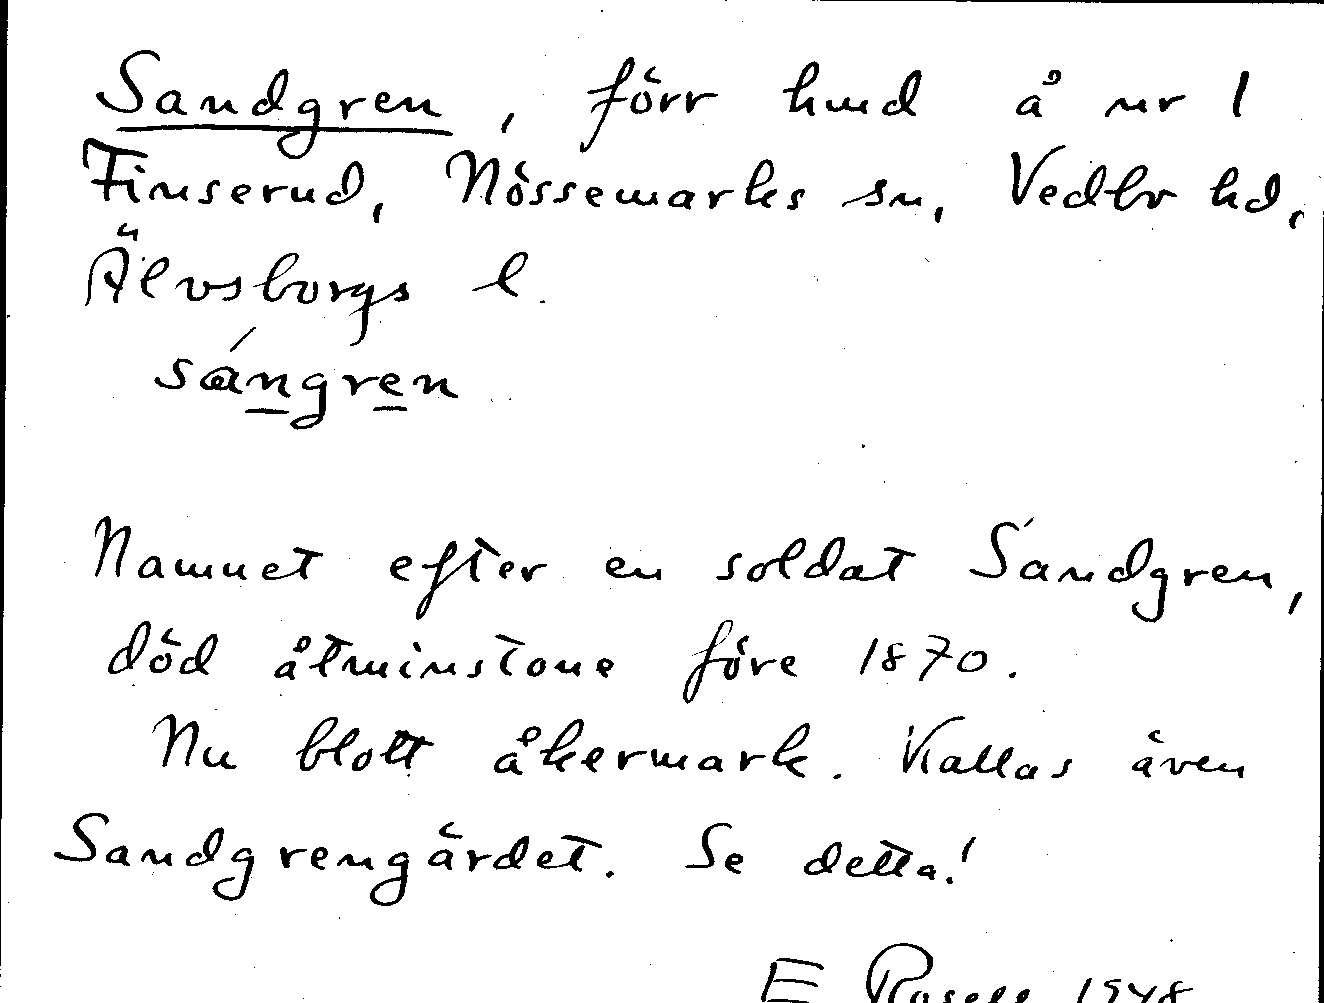 Sandgren, förr hmd å nr 1
Finserud, Nössemarks sn, Vedbo hd,
Älvsborgs l.
sángren
Namnet efter en soldat Sandgren,
död åtminstone före 1870.
Nu blott åkermark. Kallas även
Sandgrengärdet. Se detta!
E Rosell 1948